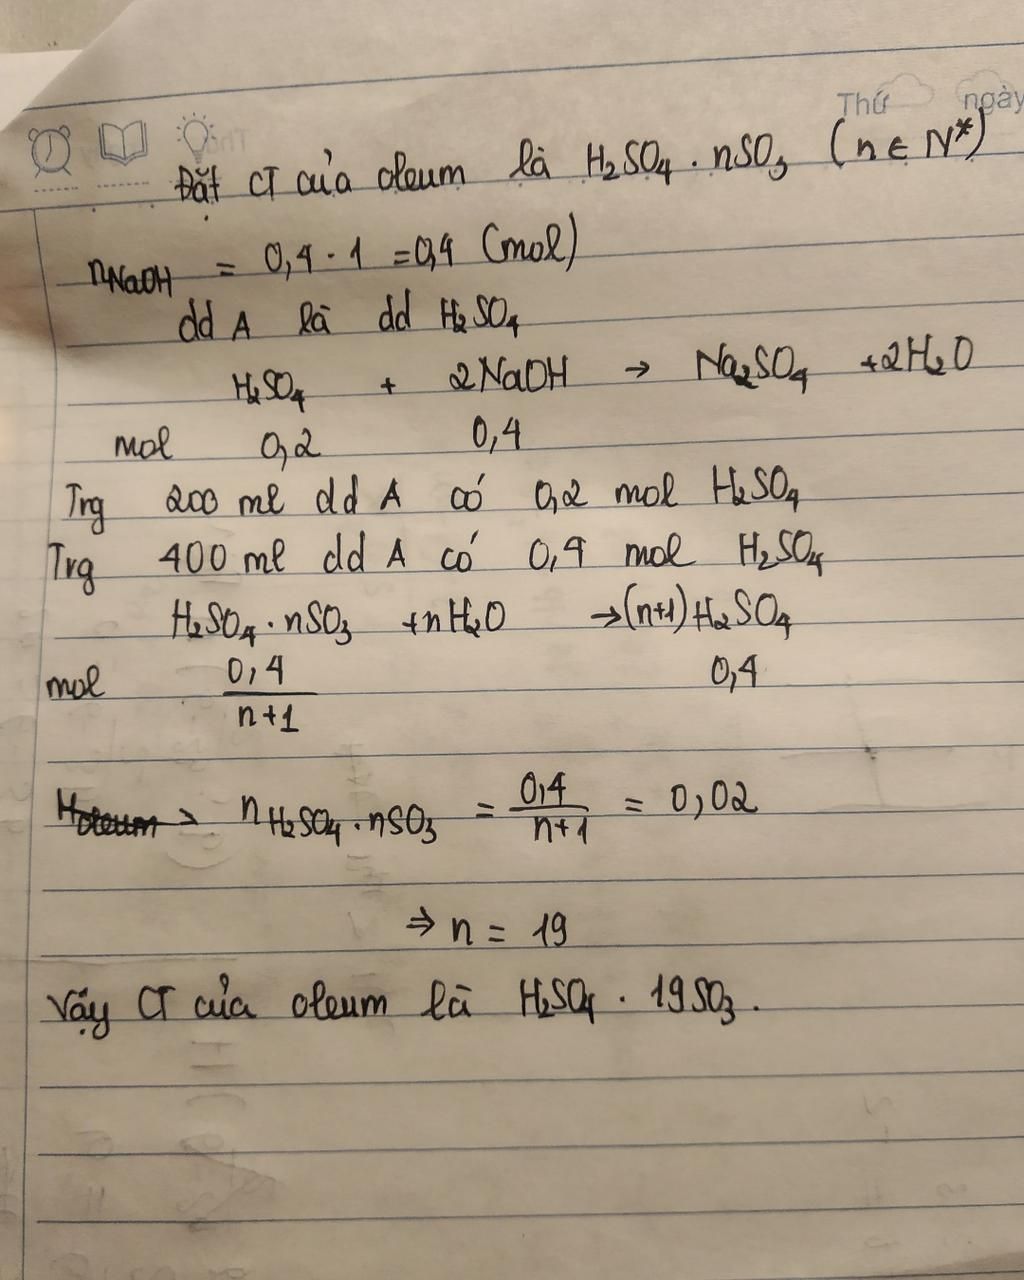 Thứ ngày
Đặt CT của oleum là H₂SO₄ . nSO₃ (n ∈ N*)
nNaOH = 0,4 . 1 = 0,4 (mol)
dd A là dd H₂SO₄
H₂SO₄ + 2NaOH → Na₂SO₄ + 2H₂O
mol 0,2 0,4
Trg 200 ml dd A có 0,2 mol H₂SO₄
Trg 400 ml dd A có 0,4 mol H₂SO₄
H₂SO₄ . nSO₃ + nH₂O → (n+1) H₂SO₄
mol 0,4/(n+1) 0,4
n H₂SO₄ . nSO₃ = 0,4/(n+1) = 0,02
⇒ n = 19
Vậy CT của oleum là H₂SO₄ . 19SO₃.